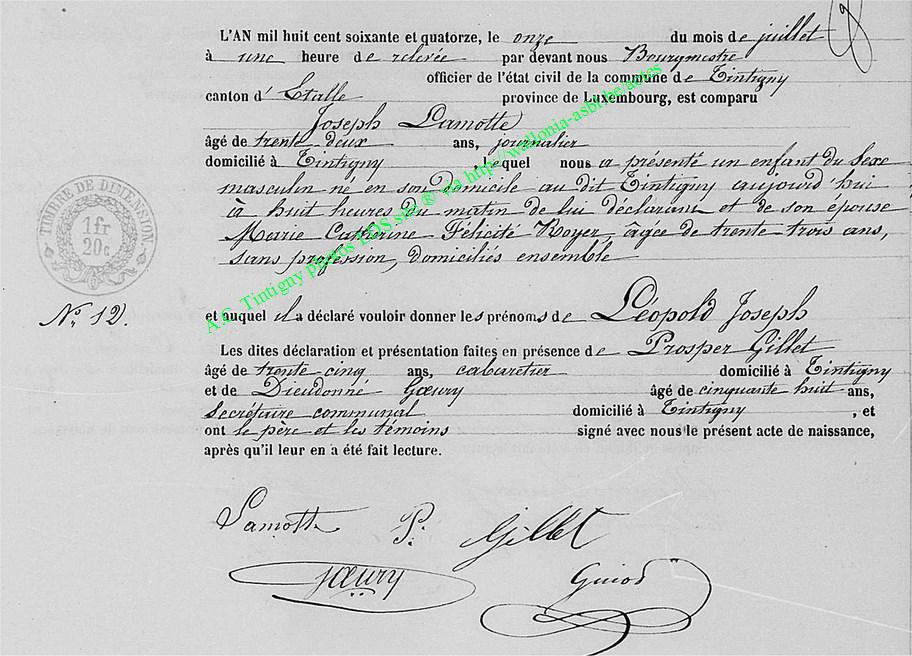 L'AN mil huit cent soixante et quatorze, le onze du mois de juillet
à une heure de relevée par devant nous Bourgmestre
officier de l'état civil de la commune de Tintigny
canton d' Etalle province de Luxembourg, est comparu
Joseph Lamotte
âgé de trente deux ans, journalier
domicilié à Tintigny , lequel nous a présenté un enfant du sexe
masculin né en son domicile au dit Tintigny aujourd'hui
à huit heures du matin de lui déclarant et de son épouse
Marie Catherine Félicité Noyer, agée de trente trois ans,
sans profession, domiciliés ensemble
TIMBRE DE DIMENSION.
1fr
20c
A.C. Tintigny photos EDS sur ® via http://wallonia-asbl.be/actes
N° 12.
et auquel il a déclaré vouloir donner les prénoms de Léopold Joseph
Les dites déclaration et présentation faites en présence de Prosper Gillet
âgé de trente cinq ans, cabaretier domicilié à Tintigny
et de Dieudonné Gœury âgé de cinquante huit ans,
secrétaire communal domicilié à Tintigny , et
ont le père et les témoins signé avec nous le présent acte de naissance,
après qu'il leur en a été fait lecture.
Lamotte P. Gillet
Gœury